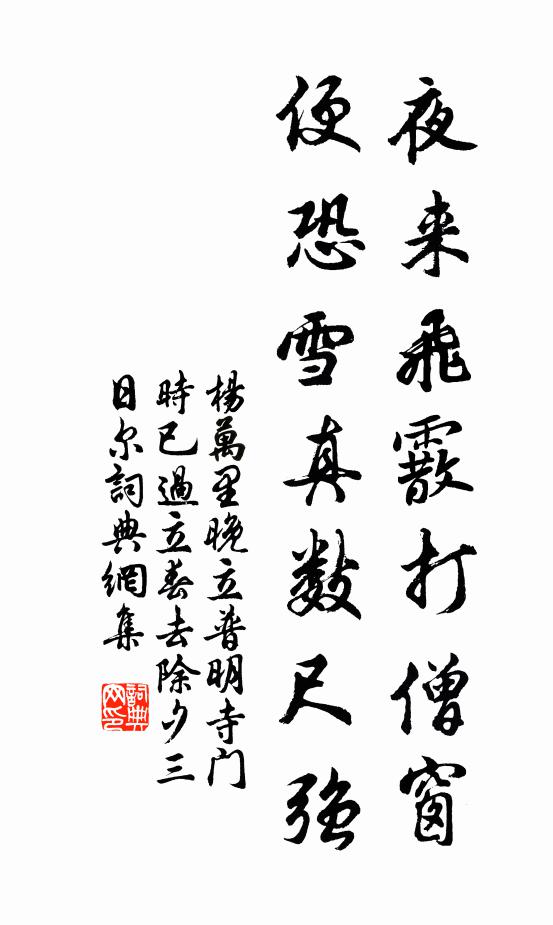 夜来飛霰打僧窗
便恐雪真數尺強
楊萬里晚立普明寺門
時已過立春去除夕三
日尔詞典網集
詞典
网印